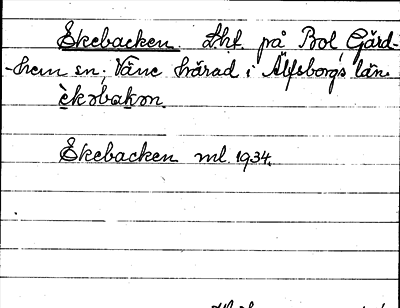 Ekebacken. Lht. på Bol, Gärd-
-hem sn; Väne härad i Älfsborgs län.
èkəbakən.
Ekebacken ml. 1934.